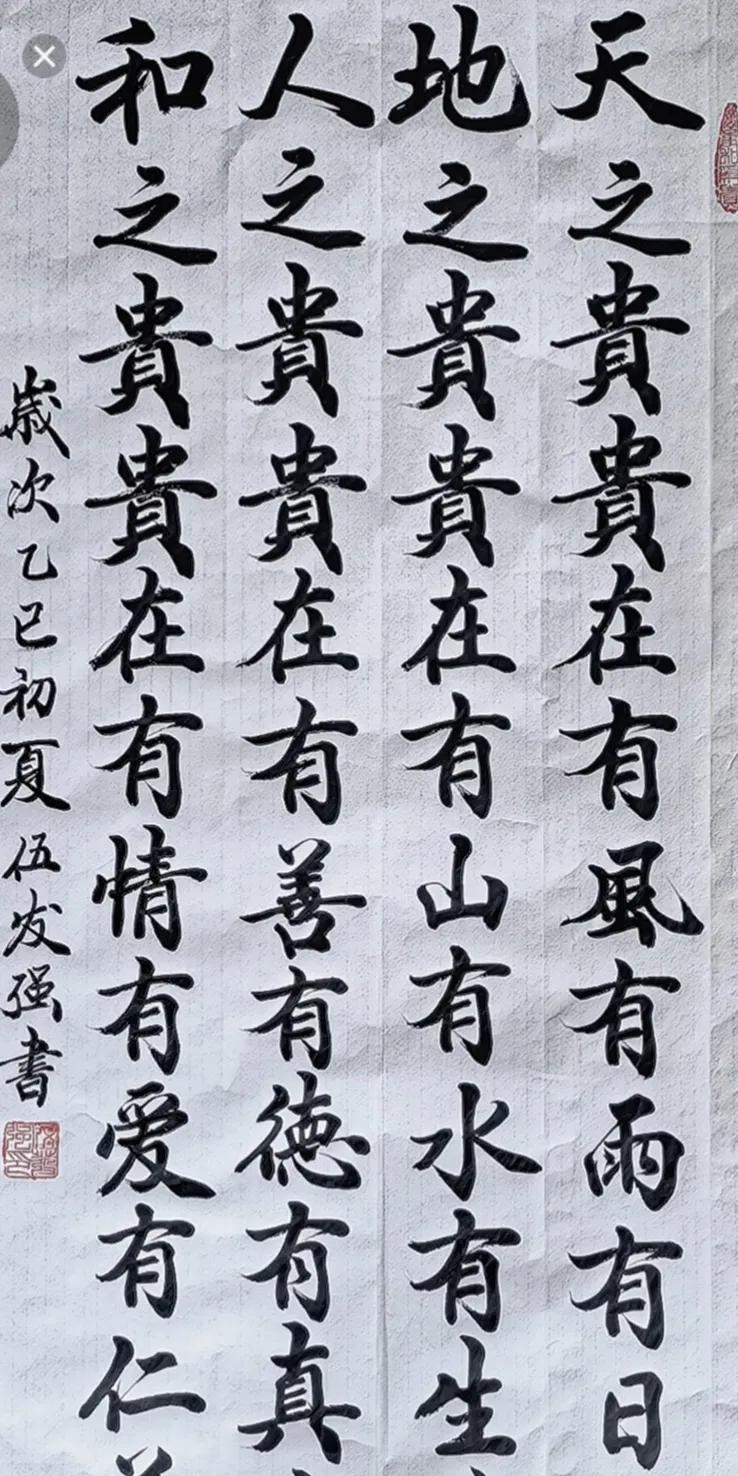 天之貴貴在有風有雨有日
地之貴貴在有山有水有生
人之貴貴在有善有德有真
和之貴貴在有情有爱有仁
歲次乙巳初夏伍发强書